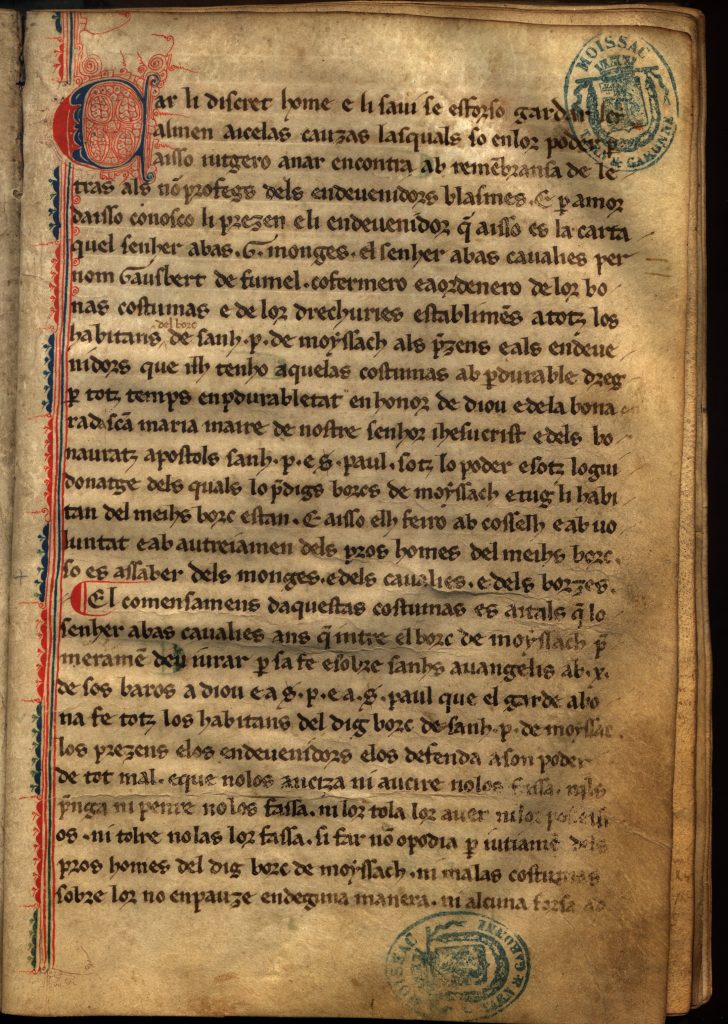 MOISSAC
TARN & GARONNE
Car li discret home e li savi se esforso gardar
calmen aicelas cauzas lasquals so enlor poder p̄
aisso iutgero anar encontra ab remēbransa de le
tras als nō profegs dels endevenidors blasmes. E ꝑ amor
daisso conosco li prezen e li endevenidor q̄ aisso es la carta
quel senher abas .G. monges. el senher abas cavalies per
nom Gausbert de fumel. cofermero e aordenero de lor bo
nas costumas e de lor drechuries establimēs a totz los
del borc
habitans de sanh .p. de moyssach als p̄zens e als endeve
nidors que ilh tenho aquelas costumas ab ꝑdurable dreg
ꝑ totz temps en ꝑdurabletat en honor de diou e de la bona
rad scā maria maire de nostre senhor ihesucrist e dels bo
nauratz apostols sanh .p. e .s. paul. sotz lo poder e sotz logui
donatge dels quals lo p̄digs borcs de moyssach e tug li habi
tan del meihs borc estan. E aisso elh feiro ab cosselh e ab vo
luntat e ab autreiamen dels pros homes del meihs borc.
so es assaber dels monges. e dels cavalies. e dels borzes.
El comensamens daquestas costumas es aitals q̄ lo
senher abas cavalies ans q̄ intre el borc de moyssach p̄
meramē deu iurar ꝑ sa fe e sobre sanhs avangelis ab .x.
de sos baros a diou e a .s. p. e .a. s. paul que el garde a bo
na fe totz los habitans del dig borc de sanh .p. de moyssac
los prezens e los endevenidors e los defenda a son poder
de tot mal. e que no los auciza ni aucire no los fassa. nils
p̄nga ni penre no los fassa. ni lor tola lor aver ni lor possessi
os. ni tolre no las lor fassa. si far nō o podia ꝑ iutiamē dels
pros homes del dig borc de moyssach. ni malas costumas
sobre lor no enpauze en deguna manera. ni alcuna forsa
MOISSAC
TARN & GARONNE